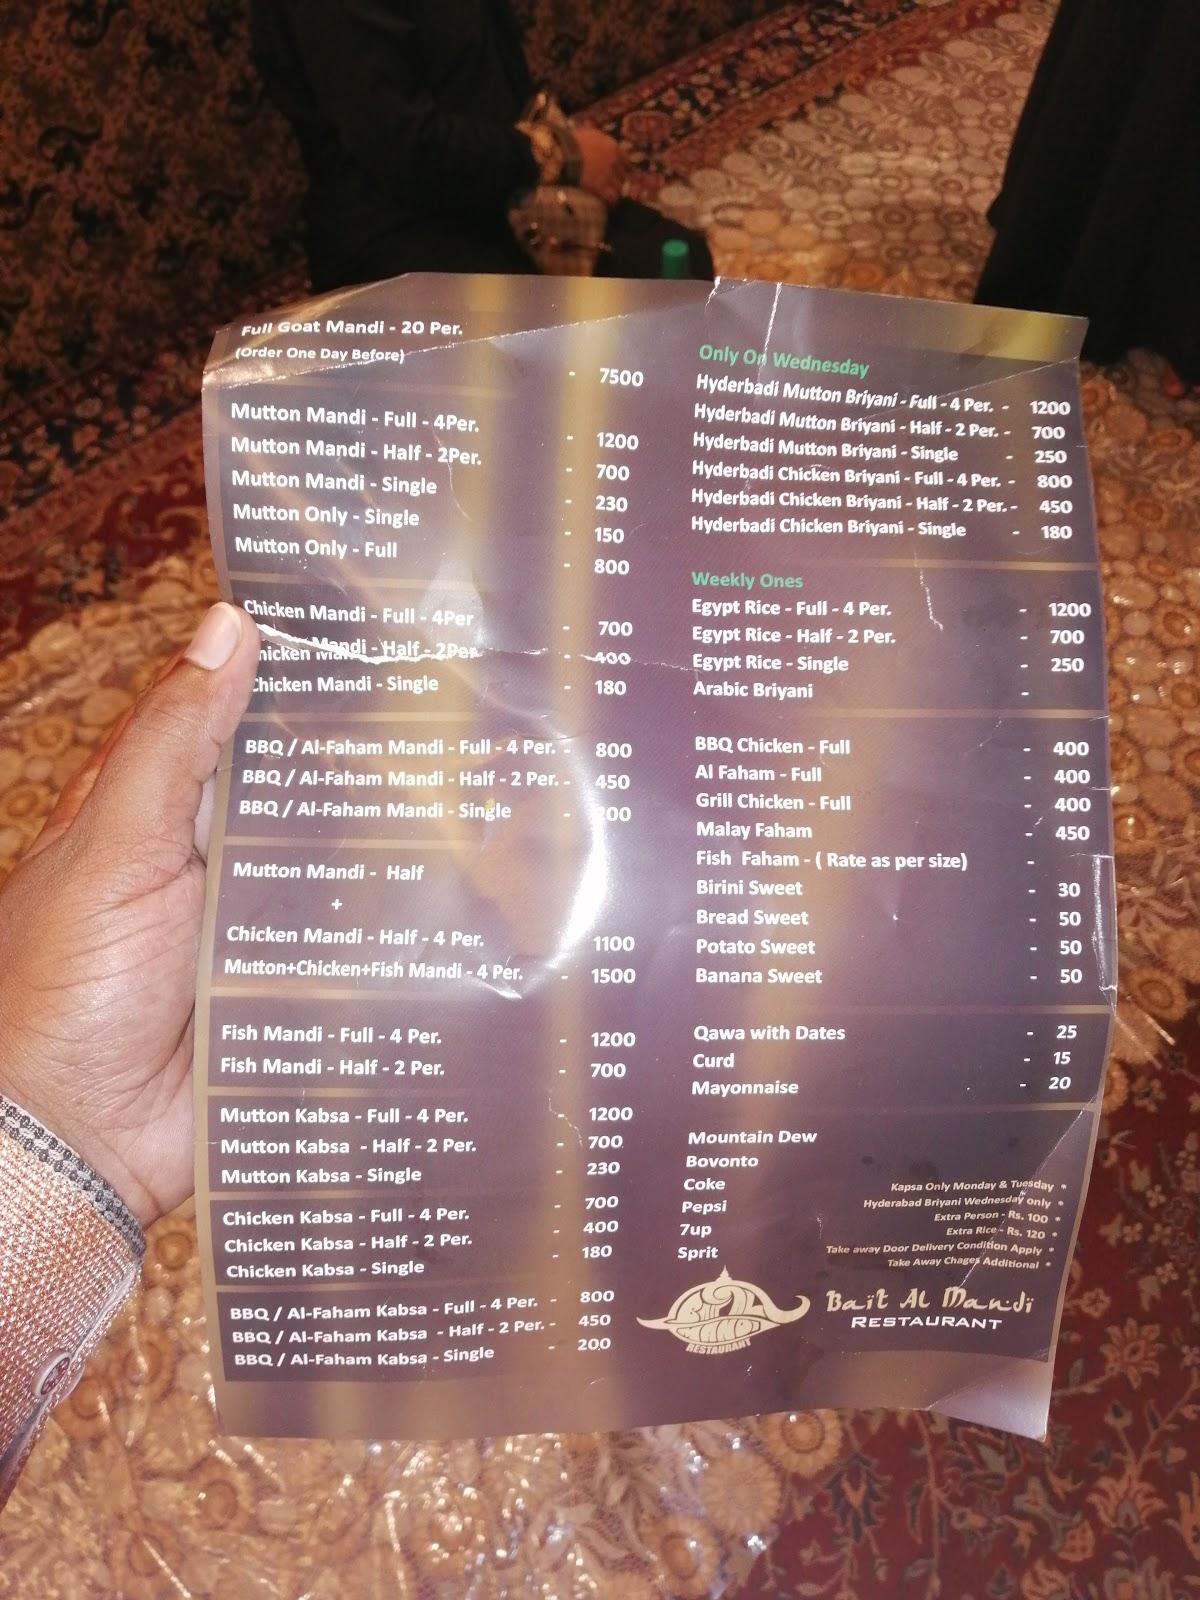 Full Goat Mandi - 20 Per.
(Order One Day Before)
- 7500
Mutton Mandi - Full - 4Per. - 1200
Mutton Mandi - Half - 2Per. - 700
Mutton Mandi - Single - 230
Mutton Only - Single - 150
Mutton Only - Full - 800
Chicken Mandi - Full - 4Per - 700
Chicken Mandi - Half - 2Per. - 400
Chicken Mandi - Single - 180
BBQ / Al-Faham Mandi - Full - 4 Per. - 800
BBQ / Al-Faham Mandi - Half - 2 Per. - 450
BBQ / Al-Faham Mandi - Single - 200
Mutton Mandi - Half
+
Chicken Mandi - Half - 4 Per. - 1100
Mutton+Chicken+Fish Mandi - 4 Per. - 1500
Fish Mandi - Full - 4 Per. - 1200
Fish Mandi - Half - 2 Per. - 700
Mutton Kabsa - Full - 4 Per. - 1200
Mutton Kabsa - Half - 2 Per. - 700
Mutton Kabsa - Single - 230
Chicken Kabsa - Full - 4 Per. - 700
Chicken Kabsa - Half - 2 Per. - 400
Chicken Kabsa - Single - 180
BBQ / Al-Faham Kabsa - Full - 4 Per. - 800
BBQ / Al-Faham Kabsa - Half - 2 Per. - 450
BBQ / Al-Faham Kabsa - Single - 200
Only On Wednesday
Hyderbadi Mutton Briyani - Full - 4 Per. - 1200
Hyderbadi Mutton Briyani - Half - 2 Per. - 700
Hyderbadi Mutton Briyani - Single - 250
Hyderbadi Chicken Briyani - Full - 4 Per. - 800
Hyderbadi Chicken Briyani - Half - 2 Per. - 450
Hyderbadi Chicken Briyani - Single - 180
Weekly Ones
Egypt Rice - Full - 4 Per. - 1200
Egypt Rice - Half - 2 Per. - 700
Egypt Rice - Single - 250
Arabic Briyani -
BBQ Chicken - Full - 400
Al Faham - Full - 400
Grill Chicken - Full - 400
Malay Faham - 450
Fish Faham - ( Rate as per size) -
Birini Sweet - 30
Bread Sweet - 50
Potato Sweet - 50
Banana Sweet - 50
Qawa with Dates - 25
Curd - 15
Mayonnaise - 20
Mountain Dew
Bovonto
Coke
Pepsi
7up
Sprit
Kapsa Only Monday & Tuesday *
Hyderabad Briyani Wednesday only *
Extra Person - Rs. 100 *
Extra Rice - Rs. 120 *
Take away Door Delivery Condition Apply *
Take Away Chages Additional *
BAIT AL
MANDI
RESTAURANT
Bait Al Mandi
RESTAURANT